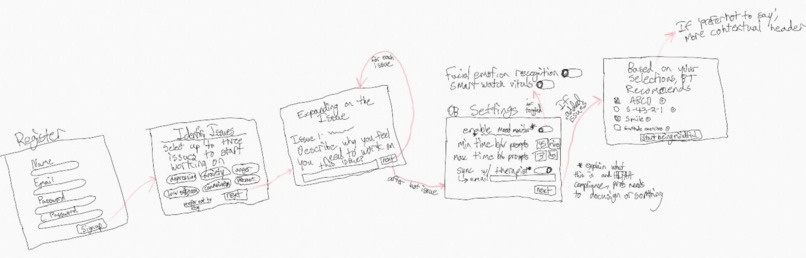 Register
Name
Email
Password
Password
Signup
Identify Issues
Select up to three
issues to start
working on
depression
anxiety
anger
low self esteem
prefer not to
say
next
Expanding on the
Issue
Issue 1:
Describe why you feel
you need to work on
this issue?
next
for each
issue
after last issue
Facial emotion recognition
Smart watch vitals
if
toggled
Settings
enable mood monitor*
min time b/w prompts
max time b/w prompts
sync w/ therapist*
email
next
If
added
issues
* explain what
this is and HIPAA
compliance, prob needs
to docusign or something
If 'prefer not to say',
more contextual header
Based on your
selections, BT
Recommends
ABCD
5-4-3-2-1
Smile
Start being mindful